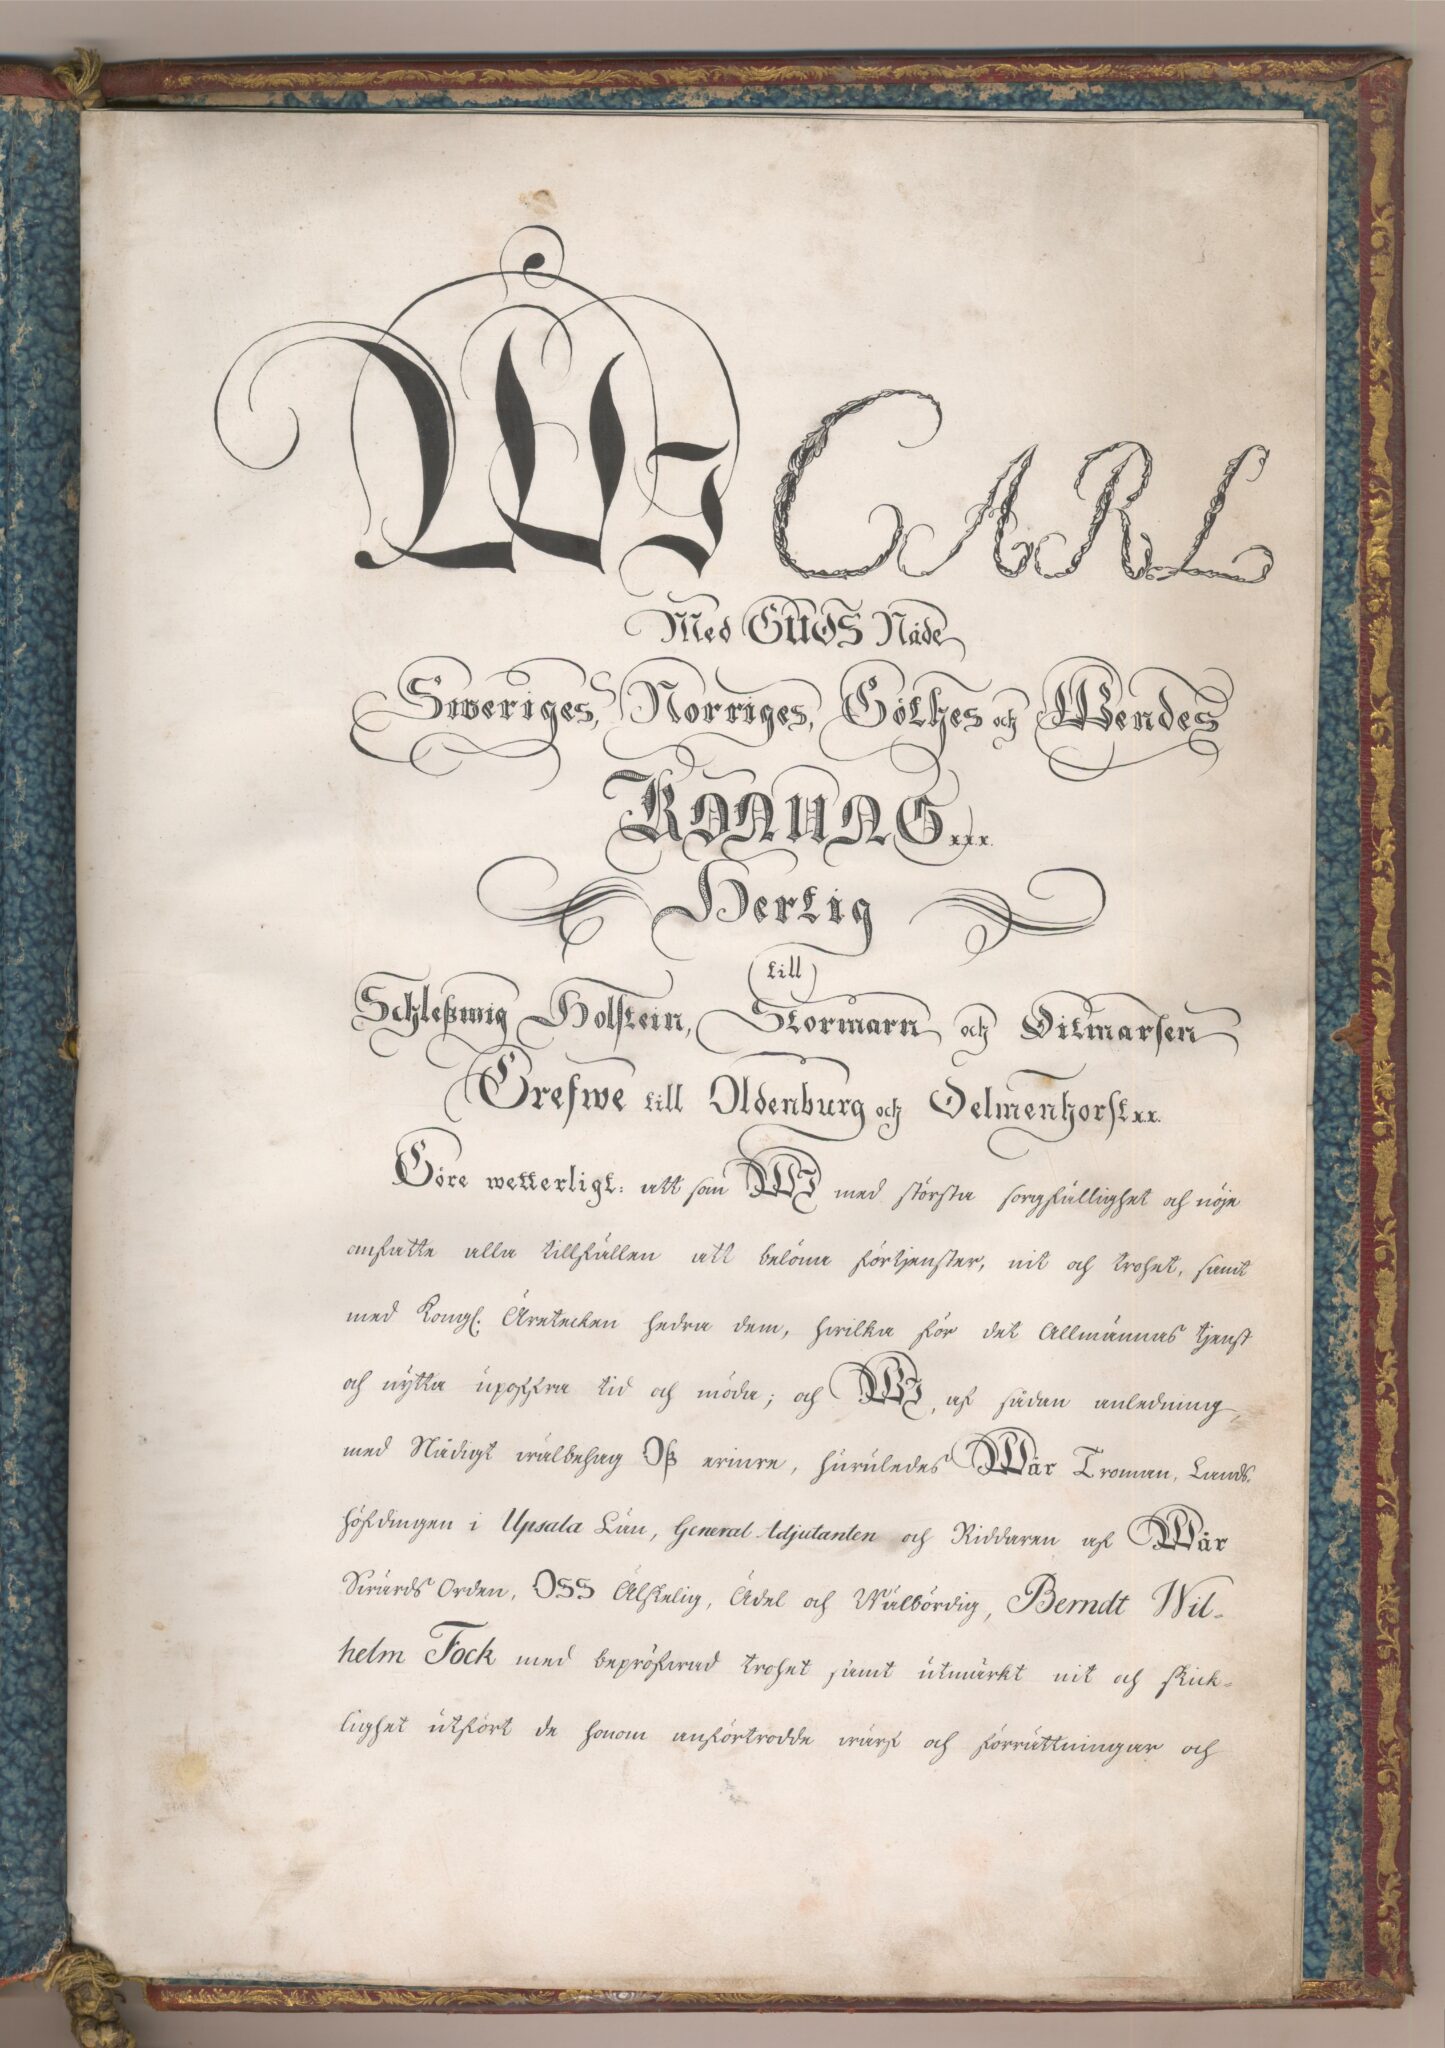 WJ CARL
Med GUDS Nåde
Sweriges, Norriges, Göthes och Wendes
KONUNG xxx.
Hertig
till
Schleßwig Holstein, Stormarn och Ditmarsen
Grefwe till Oldenburg och Delmenhorst xx.
Göre wetterligt: att som WJ med största sorgfällighet och nöje
omfatte alla tillfällen att belöna förtjenster, nit och trohet, samt
med Kongl. Äretecken hedra dem, hwilka för det Allmännas tjenst
och nytta upoffra tid och möda; och WJ, af sådan anledning,
med Nådigt wälbehag Oß erinre, huruledes Wår Troman, Lands-
höfdingen i Upsala Län, General Adjutanten och Riddaren af Wår
Swärds Orden, OSS Älskelig, Ädel och Wälbördig, Berndt Wil-
helm Fock med bepröfwad trohet samt utmärkt nit och skick-
lighet utfört de honom anförtrodde wärf och förrättningar och